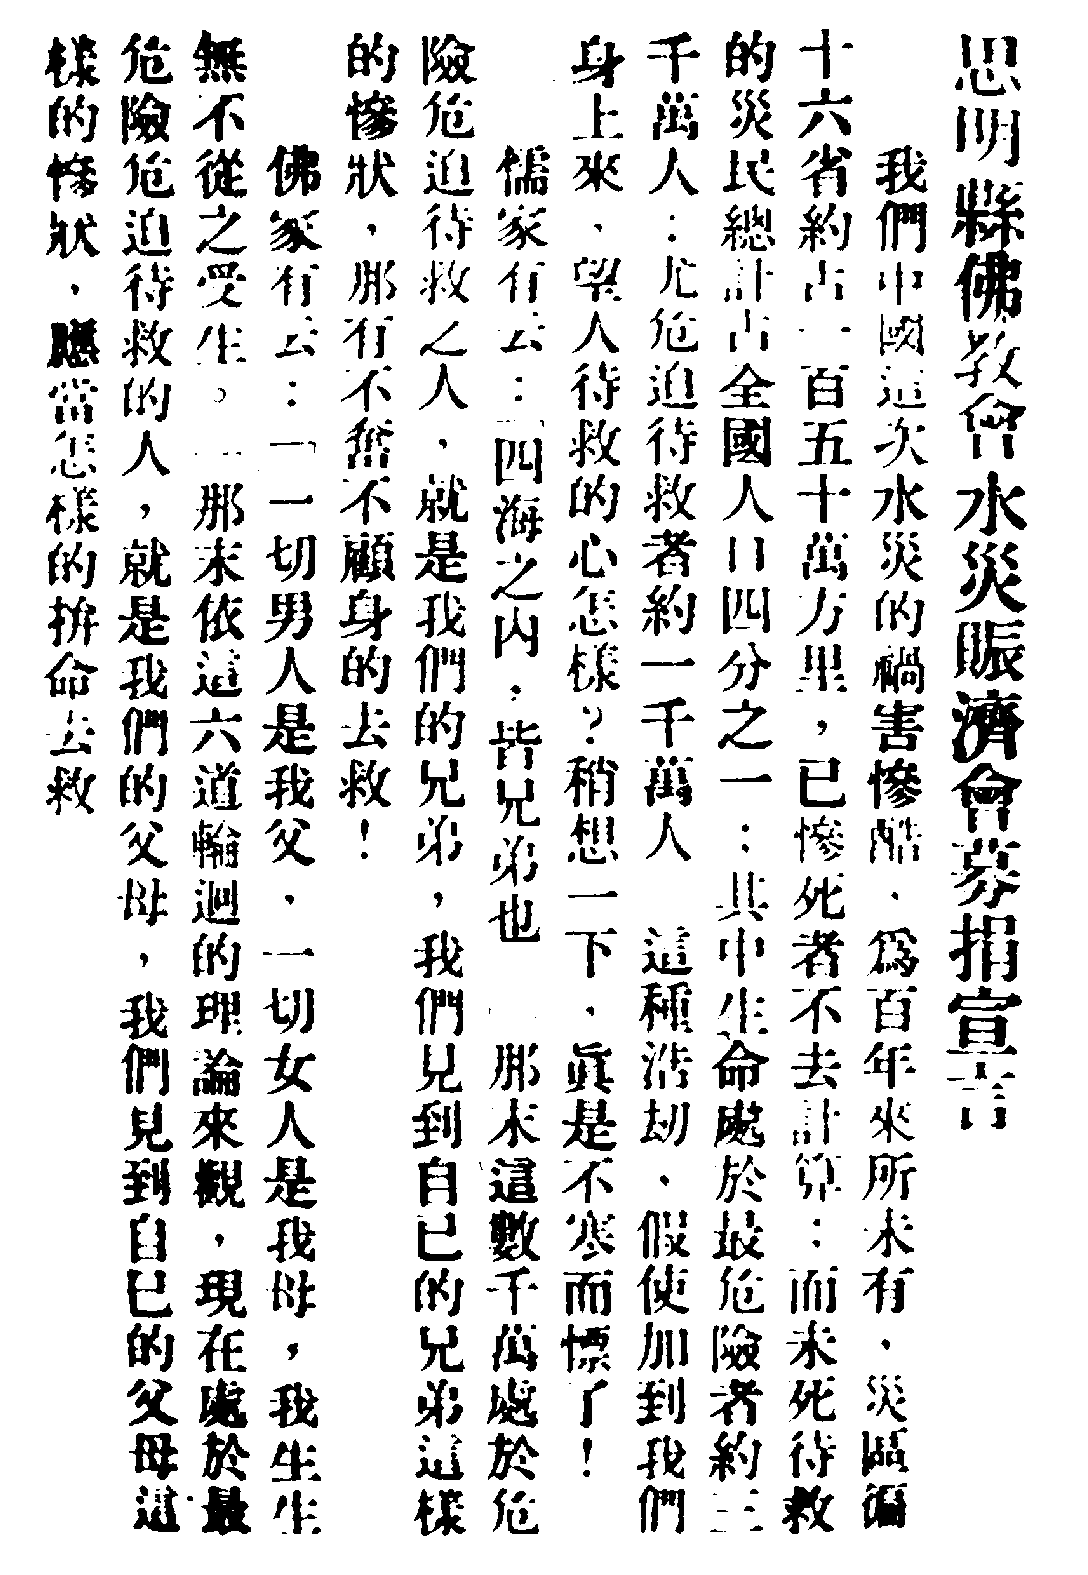 思明縣佛教會水災賑濟會募捐宣言
我們中國這次水災的禍害慘酷、爲百年來所未有、災區徧
十六省約占一百五十萬方里，已慘死者不去計算：而未死待救
的災民總計占全國人口四分之一：其中生命處於最危險者約三
千萬人：尤危迫待救者約一千萬人　這種浩劫、假使加到我們
身上來、望人待救的心怎樣？稍想一下、眞是不寒而慄了！
儒家有云：「四海之內，皆兄弟也　」那末這數千萬處於危
險危迫待救之人、就是我們的兄弟，我們見到自已的兄弟這樣
的慘狀，那有不奮不顧身的去救！
佛家有云：「一切男人是我父、一切女人是我母，我生生
無不從之受生。」那末依這六道輪迴的理論來觀，現在處於最
危險危迫待救的人，就是我們的父母，我們見到自已的父母這
樣的慘狀，應當怎樣的拚命去救